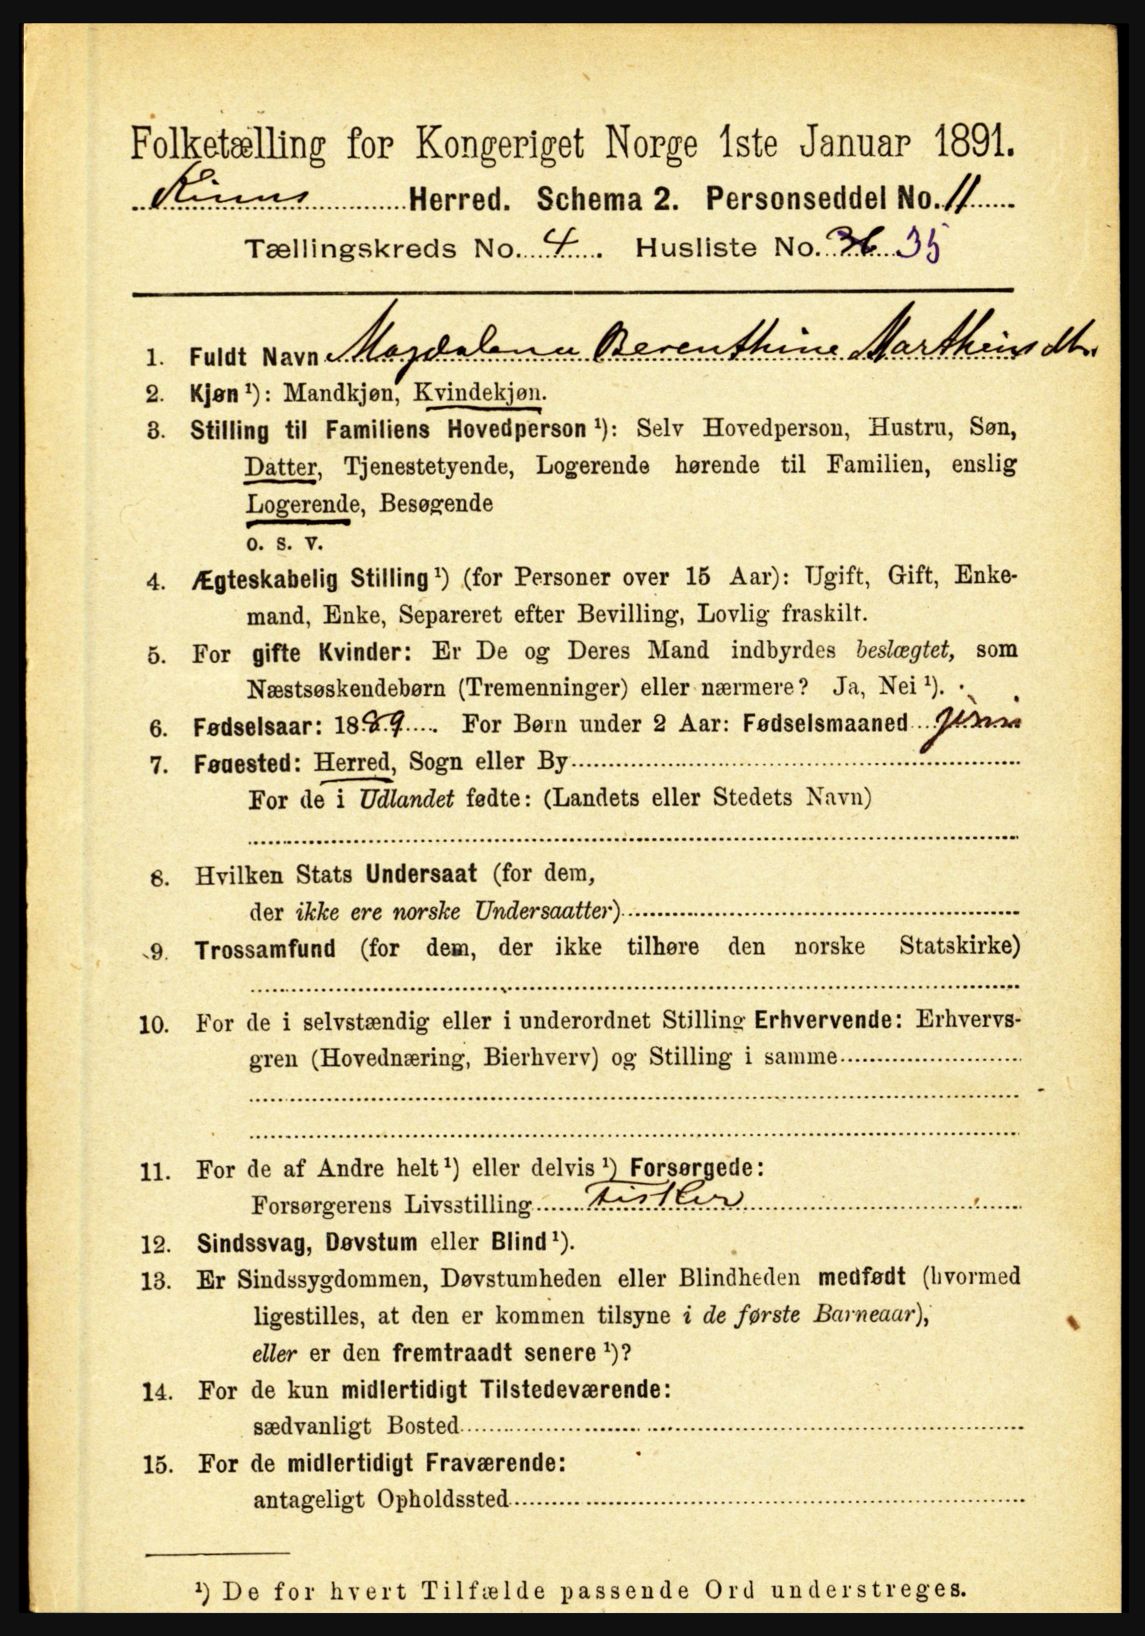 Folketælling for Kongeriget Norge 1ste Januar 1891.
Kinns Herred. Schema 2. Personseddel No. 11
Tællingskreds No. 4. Husliste No. 36 35
1. Fuldt Navn Magdalena Berenthine Marthinsdtr.
2. Kjøn ¹): Mandkjøn, Kvindekjøn.
3. Stilling til Familiens Hovedperson ¹): Selv Hovedperson, Hustru, Søn,
Datter, Tjenestetyende, Logerende hørende til Familien, enslig
Logerende, Besøgende
o. s. v.
4. Ægteskabelig Stilling ¹) (for Personer over 15 Aar): Ugift, Gift, Enke-
mand, Enke, Separeret efter Bevilling, Lovlig fraskilt.
5. For gifte Kvinder: Er De og Deres Mand indbyrdes beslægtet, som
Næstsøskendebørn (Tremenninger) eller nærmere? Ja, Nei ¹).
6. Fødselsaar: 1889. For Børn under 2 Aar: Fødselsmaaned juni
7. Føuested: Herred, Sogn eller By
For de i Udlandet fødte: (Landets eller Stedets Navn)
8. Hvilken Stats Undersaat (for dem,
der ikke ere norske Undersaatter)
9. Trossamfund (for dem, der ikke tilhøre den norske Statskirke)
10. For de i selvstændig eller i underordnet Stilling Erhvervende: Erhvervs-
gren (Hovednæring, Bierhverv) og Stilling i samme
11. For de af Andre helt ¹) eller delvis ¹) Forsørgede:
Forsørgerens Livsstilling Fisker
12. Sindssvag, Døvstum eller Blind ¹).
13. Er Sindssygdommen, Døvstumheden eller Blindheden medfødt (hvormed
ligestilles, at den er kommen tilsyne i de første Barneaar),
eller er den fremtraadt senere ¹)?
14. For de kun midlertidigt Tilstedeværende:
sædvanligt Bosted
15. For de midlertidigt Fraværende:
antageligt Opholdssted
¹) De for hvert Tilfælde passende Ord understreges.